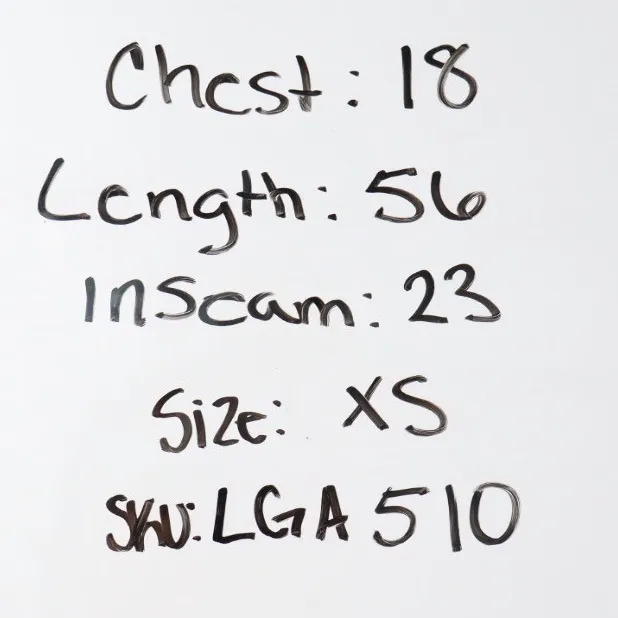 Chest: 18
Length: 56
Inseam: 23
Size: XS
SKU: LGA 510